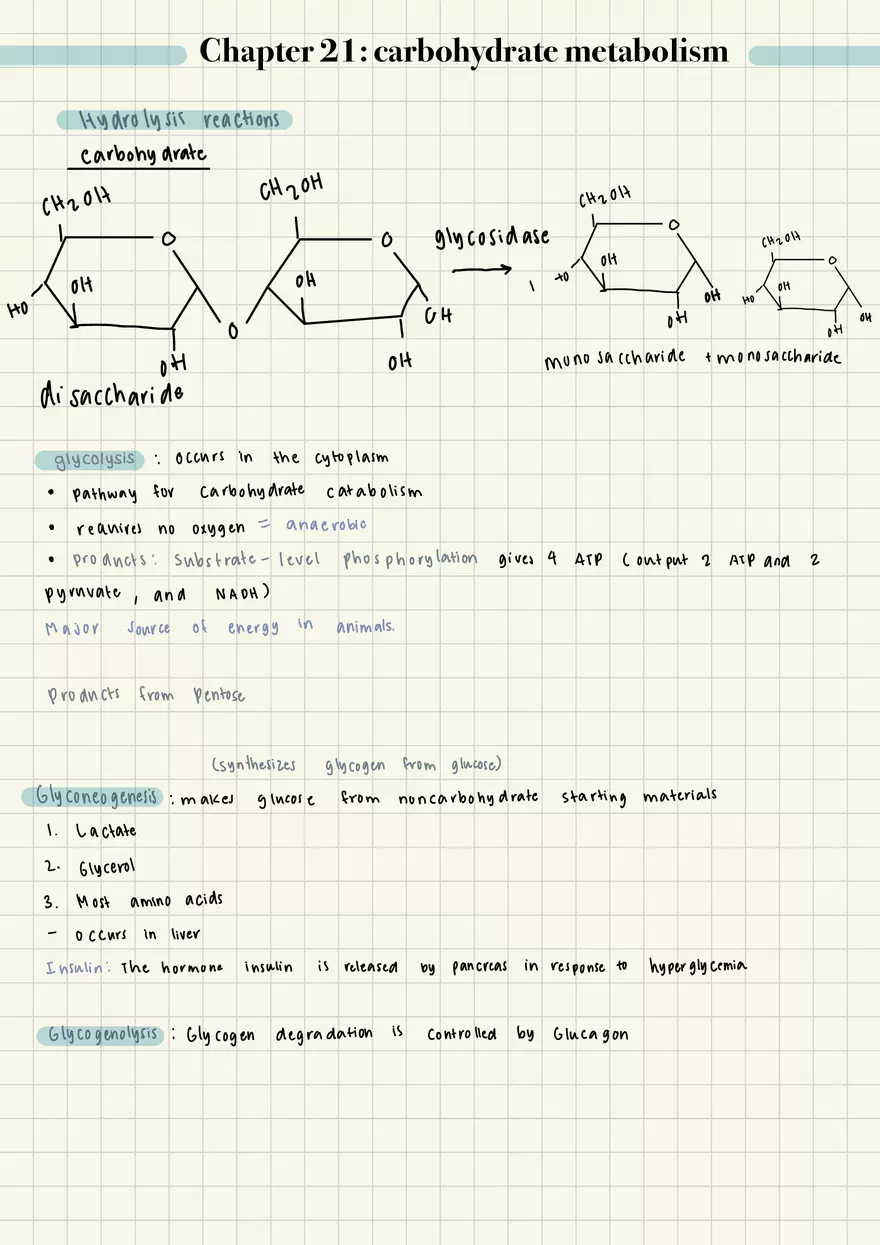 Chapter 21: carbohydrate metabolism
Hydrolysis reactions
carbohydrate
CH2OH CH2OH CH2OH
CH2OH
O O glycosidase O O
OH OH OH OH
HO HO HO
OH OH OH
O
OH OH OH OH
monosaccharide + monosaccharide
disaccharide
glycolysis : occurs in the cytoplasm
• pathway for carbohydrate catabolism
• requires no oxygen = anaerobic
• products: substrate-level phosphorylation gives 4 ATP (output 2 ATP and 2
pyruvate, and NADH)
Major source of energy in animals.
products from pentose
(synthesizes glycogen from glucose)
Glyconeogenesis : makes glucose from noncarbohydrate starting materials
1. Lactate
2. Glycerol
3. Most amino acids
- occurs in liver
Insulin: The hormone insulin is released by pancreas in response to hyperglycemia
Glycogenolysis : Glycogen degradation is controlled by Glucagon